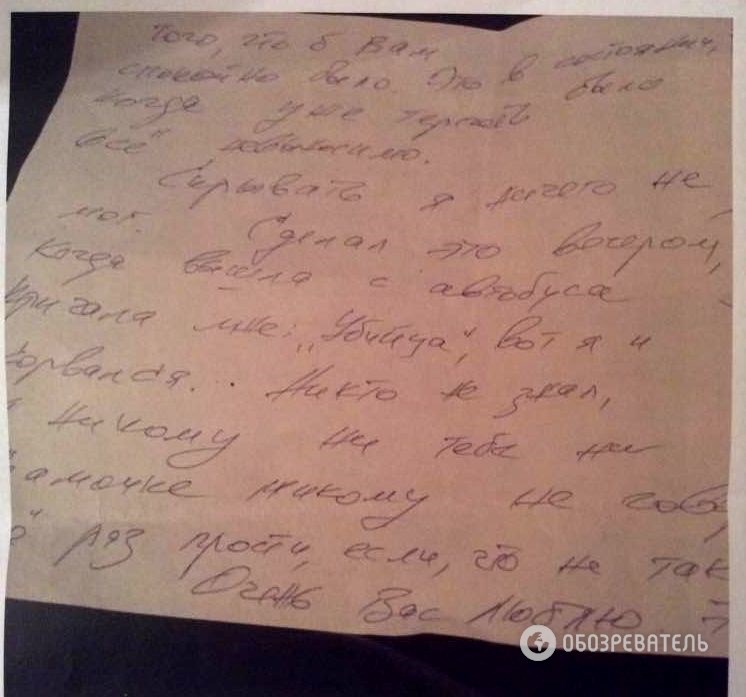 того, что б Вам
спокойно было. Это в состоянии,
когда уже терпеть было
"всё" невыносимо.
Скрывать я ничего не
мог. Сделал это вечером,
когда вышла с автобуса
кричала мне: "Убийца", вот я и
сорвался... Никто не знал,
никому ни тебе ни
мамочке никому не гов
раз прости, если, что не так
Очень Вас люблю.
ОБОЗРЕВАТЕЛЬ